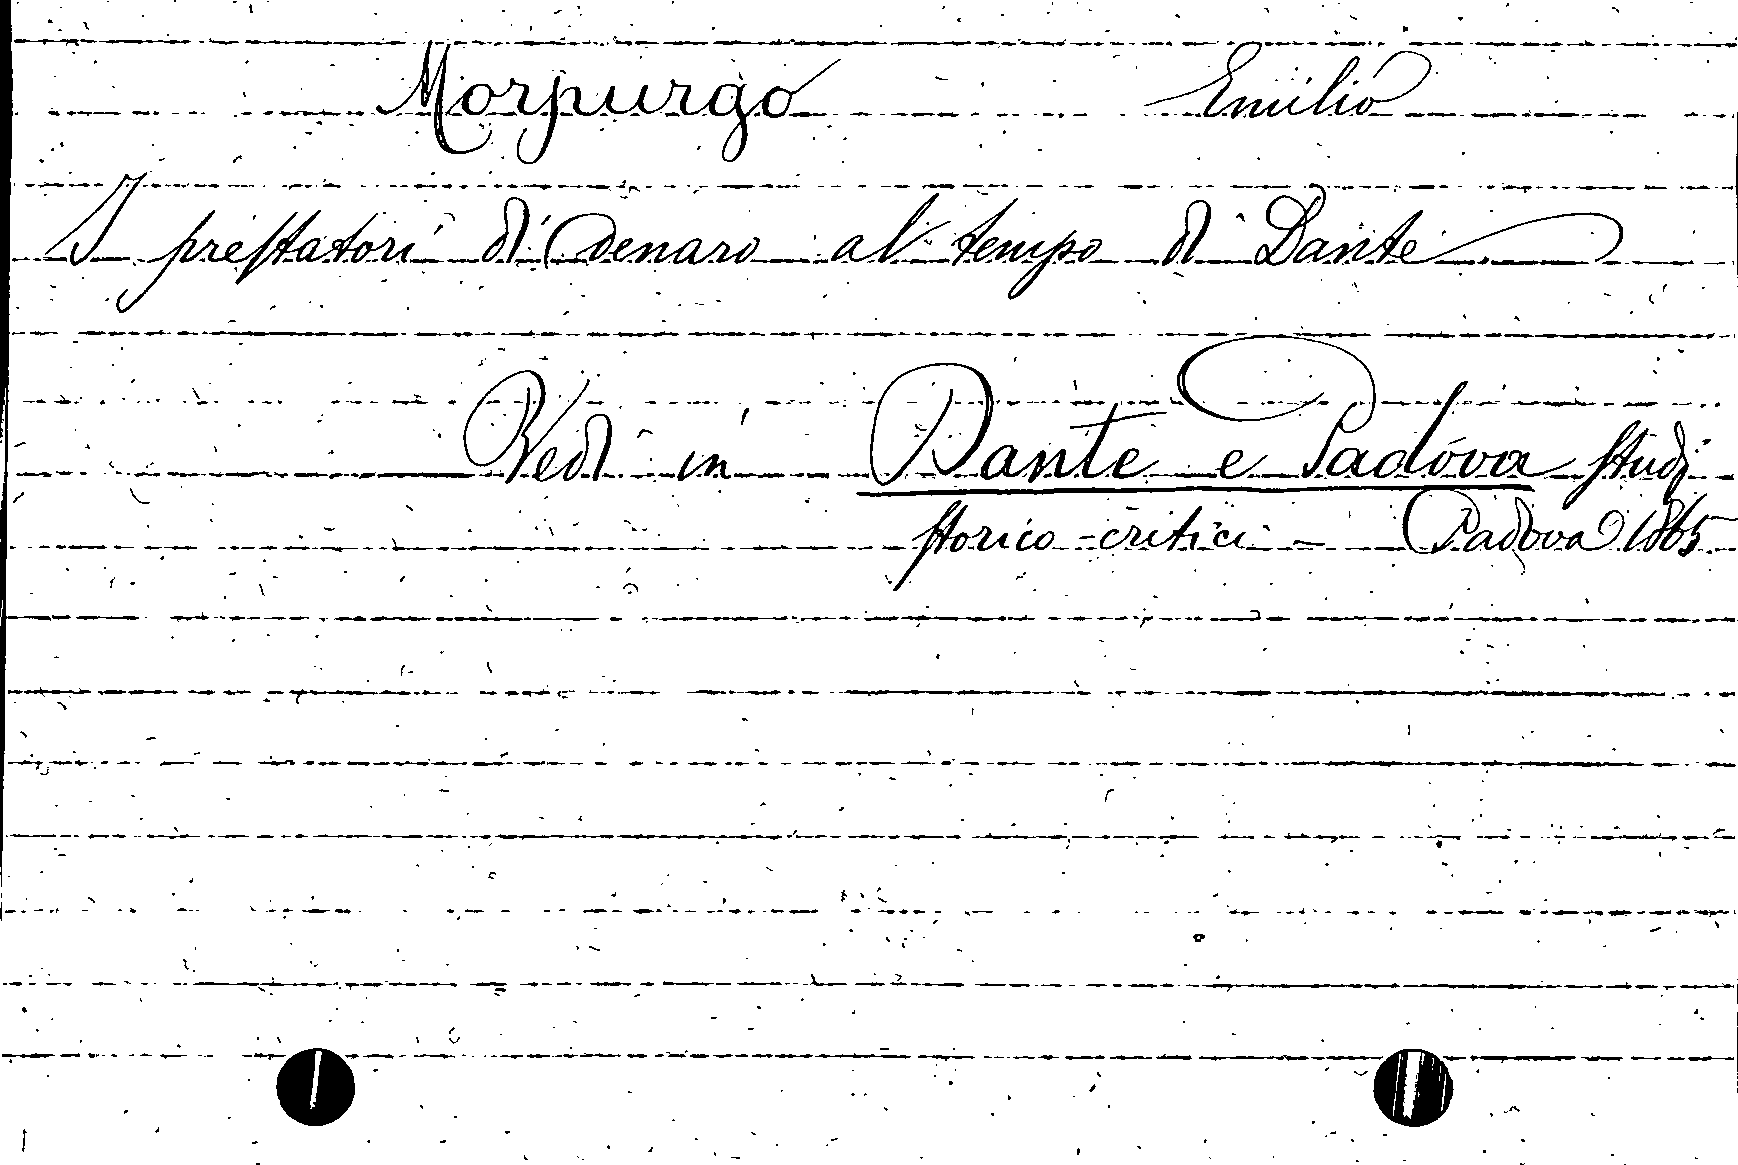 Morpurgo Emilio
I prestatori di denaro al tempo di Dante
Vedi in Dante e Padova studj
storico-critici - Padova 1865